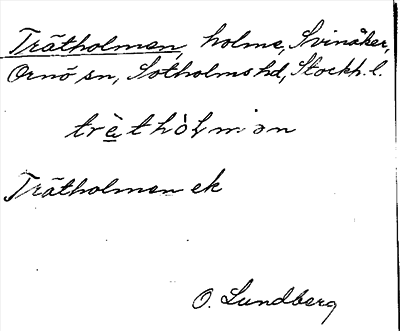 Trätholmen, holme, Svinåker,
Ornö sn, Sotholms hd, Stockh. l.
trèthòlmən
Trätholmen ek
O. Lundberg